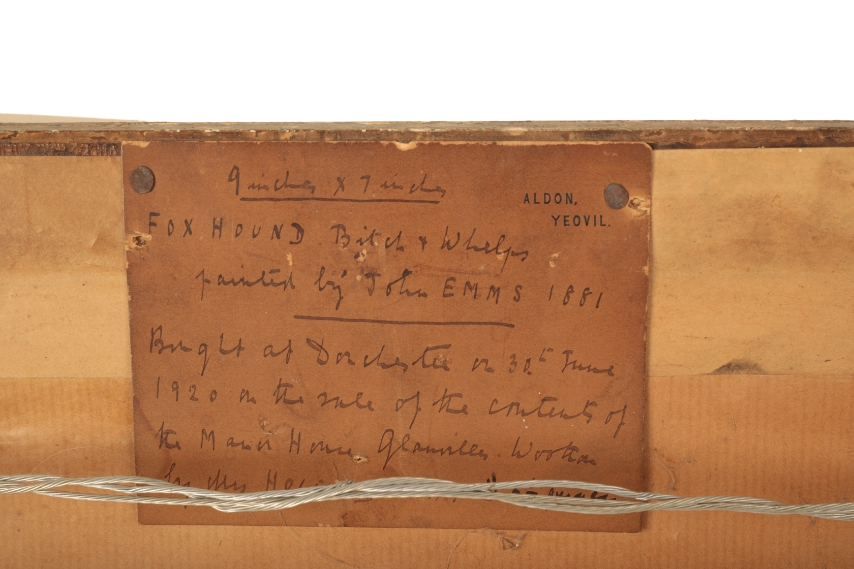 9 inches x 7 inches
ALDON,
YEOVIL.
FOX HOUND Bitch & Whelps
painted by John EMMS 1881
Bought at Dorchester on 30th June
1920 on the sale of the contents of
the Manor House, Glanvilles Wootton
by Mrs